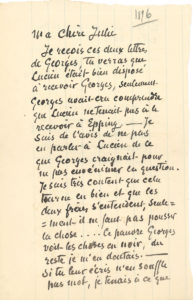 1896
ma Chère Julie
Je reçois ces deux lettres
de Georges, tu verras que
Lucien était bien disposé
à recevoir Georges, seulement
Georges avait cru comprendre
que Lucien ne tenait pas à le
recevoir à Epping — Je
suis de l'avis de ne pas
en parler à Lucien de ce
que Georges craignait pour
ne pas envenimer la question.
Je suis très content que cela
tourne en bien et que ces
deux frères s'entendent, seule=
=ment il ne faut pas pousser
la chose.... Ce pauvre Georges
voit les choses en noir, du
reste je m'en doutais —
si tu leur écris n'en souffle
pas mot, je tenais à ce que